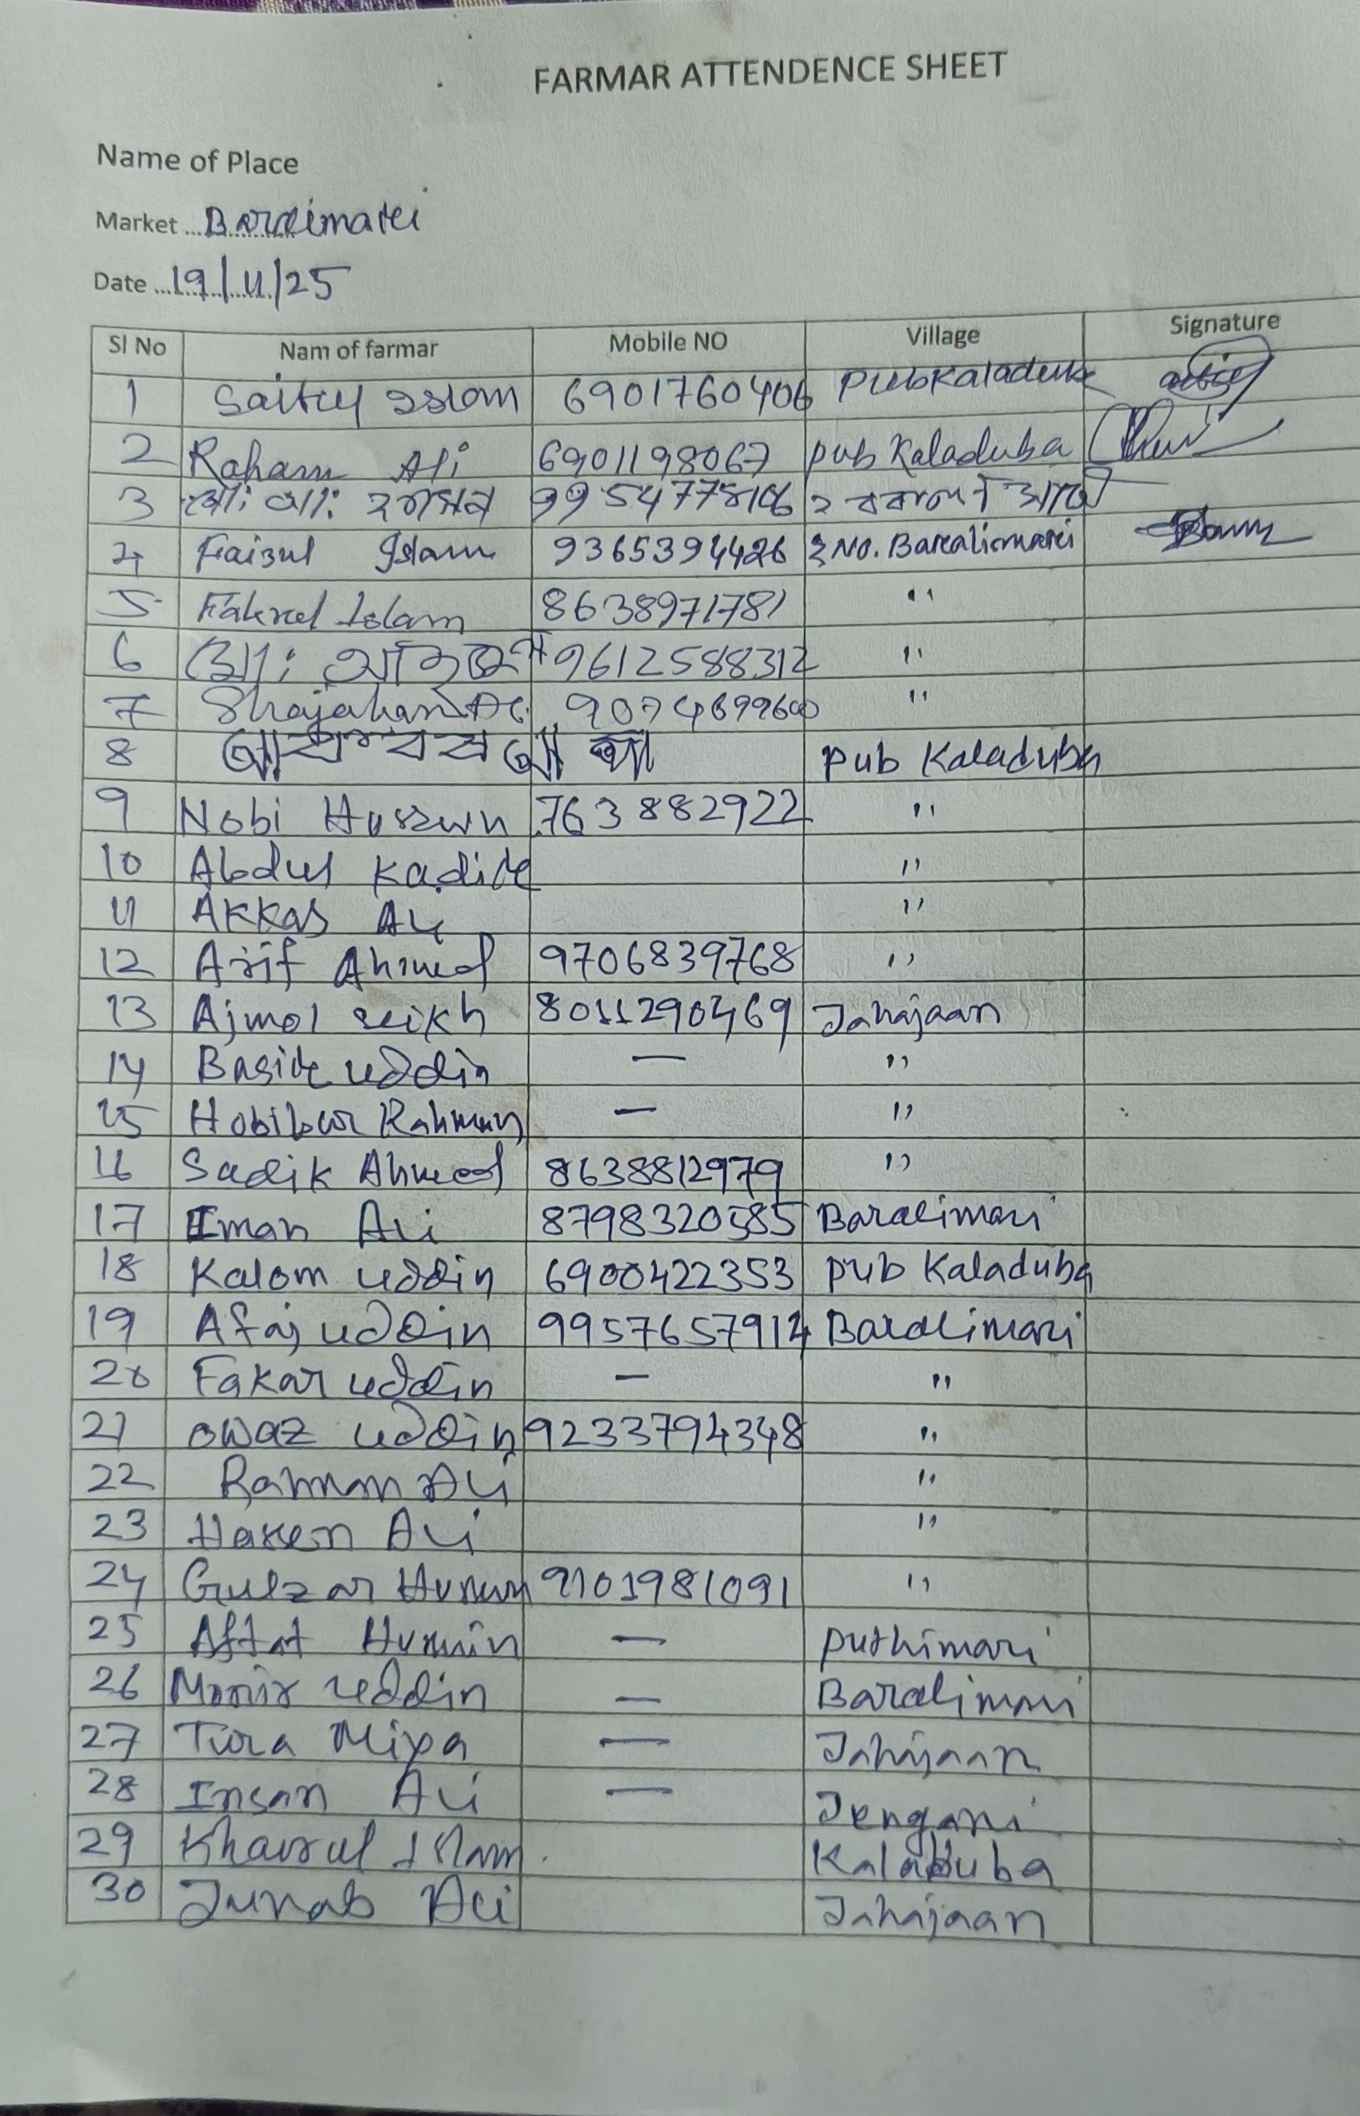 FARMAR ATTENDENCE SHEET
Name of Place
Market ... Baralimari
Date ... 19/11/25
Sl No Nam of farmar Mobile NO Village Signature
1 Islam 6901760406 PubKaladuba
2 Raham Ali 6901198067 pub Kaladuba
3 মো: 9954778106 ২
4 Faizul Islam 9365394426 2 No. Baralimari
5 Fakrul Islam 8638971781 "
6 মো: 9612588312 "
7 Shajahan Ali 9074699600 "
8 pub Kaladuba
9 Nobi Hussain 763882922 "
10 Abdul Kadir "
11 AKKAS Ali "
12 Arif Ahmed 9706839768 "
13 Ajmol seikh 8011290469 Jahajaan
14 Basir uddin — "
15 Hobibur Rahman — "
16 Sadik Ahmed 8638812979 "
17 Iman Ali 8798320585 Baralimari
18 Kalom uddin 6900422353 pub Kaladuba
19 Afaj uddin 9957657914 Baralimari
20 Fakar uddin — "
21 owaz uddin 9233794348 "
22 Rahman Ali "
23 Ali "
24 Gulzar Husain 9101981091 "
25 Aftat Husain — puthimari
26 Monir uddin — Baralimari
27 Tura Miya — Jahajaan
28 Insan Ali — Jengani
29 Khairul Islam. Kaladuba
30 Junab Ali Jahajaan